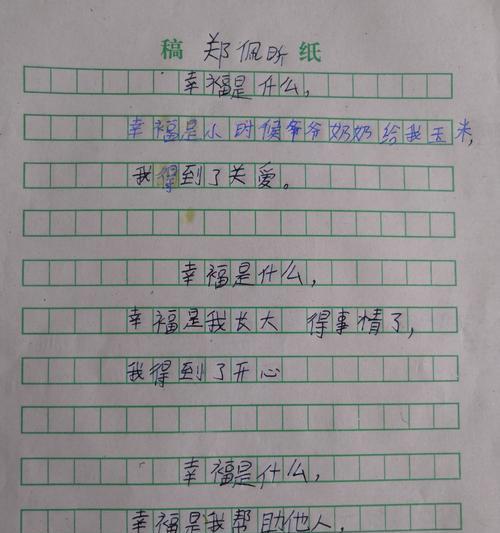 稿 郑佩昕 纸
幸福是什么,
幸福是小时候爷爷奶奶给我玉米,
我得到了关爱。
幸福是什么,
幸福是我长大 得事情了,
我得到了开心
幸福是什么,
幸福是我帮助他人,